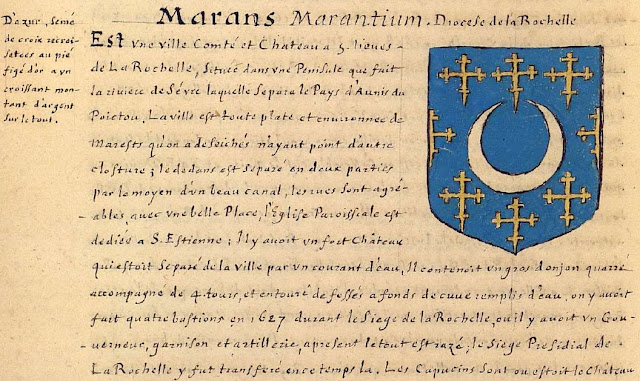 Marans Marantium. Diocese de la Rochelle
D'azur, semé
de croix recroi-
setees au pié
figé d'or a un
croissant mon-
tant d'argent
sur le tout.
Est vne ville Comté et Chateau a 3. lieues
de La Rochelle, Située dans vne Penisule que fait
la riuiere de Séure laquelle Separe le Pays d'Aunis du
Poictou. La ville est toute plate et enuironnee de
Marests qu'on a deseichés n'ayant point d'autre
closture; le dedans est Separé en deux parties
par le moyen d'vn beau canal, les rues sont agré-
ables, auec vne belle Place, l'Eglise Paroissiale est
dediée a S. Estienne; Il y auoit vn fort Château
qui estoit Separé de la ville par vn courant d'eau, Il contenoit vn gros donjon quarré
accompagné de 4. tours, et entouré de fossés a fonds de cuue remplis d'eau, on y auoit
fait quatre bastions en 1627 durant le Siege de la Rochelle, ou il y auoit vn Gou-
uerneur, garnison et artillerie, apresent le tout est razé; le Siege Presidial de
La Rochelle y fut transferé en ce temps la. Les Capucins sont ou estoit le Château